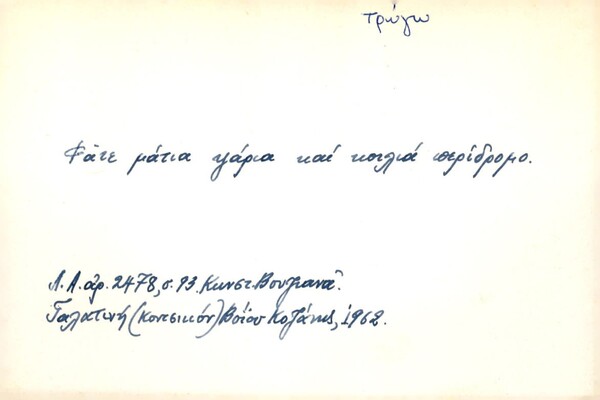 τρώγω
Φᾶτε μάτια ψάρια καί κοιλιά περίδρομο.
Λ.Α. ἀρ. 2478, σ. 93. Κωνστ.
Γαλατινή (Κοντσικόν) Βοΐου Κοζάνης, 1962.